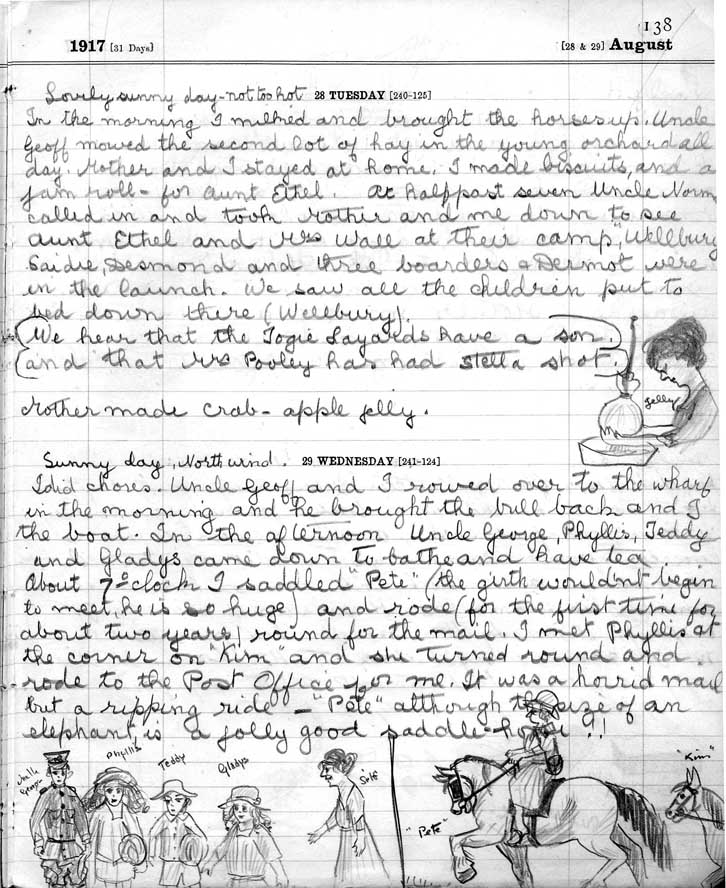 138
1917 [31 Days] [28 & 29] August
Lovely sunny day - not too hot 28 TUESDAY [240-125]
In the morning I milked and brought the horses up. Uncle
Geoff mowed the second lot of hay in the young orchard all
day. Mother and I stayed at home. I made biscuits, and a
jam roll - for Aunt Ethel. At half past seven Uncle Norm
called in and took Mother and me down to see
Aunt Ethel and Mrs Wall at their camp, "Wellbury
Saidie, Desmond and three boarders & Dermot were
in the launch. We saw all the children put to
bed down there (Wellbury).
(We hear that the Togie Layards have a son.)
(and that Mrs Pooley has had Stella shot.)
Mother made crab-apple jelly.
jelly
Sunny day, North wind. 29 WEDNESDAY [241-124]
I did chores. Uncle Geoff and I rowed over to the wharf
in the morning and he brought the bull back and I
the boat. In the afternoon Uncle George, Phyllis, Teddy
and Gladys came down to bathe and have tea
About 7 o'clock I saddled "Pete" (the girth wouldn't begin
to meet, he is so huge) and rode (for the first time for
about two years) round for the mail. I met Phyllis at
the corner on "Kim" and she turned round and
rode to the Post Office for me. It was a horrid mail
but a ripping ride - "Pete" although the size of an
elephant, is a jolly good saddle-horse!!
Uncle George Phyllis Teddy Gladys "Pete" "Kim"